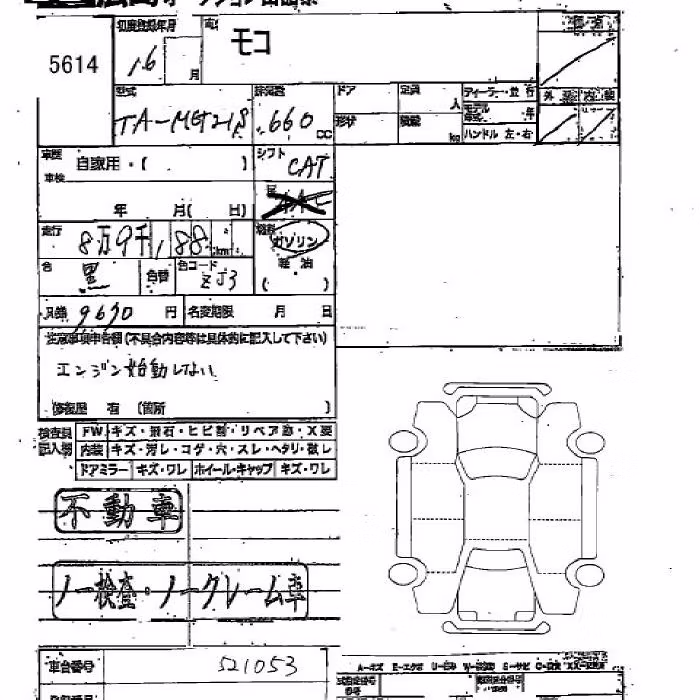 5614
初度登録年月
16 月
モコ
型式
TA-MG21S
排気量
660 cc
ドア
定員 人
ディーラー・並行
モデル年式 年
形状
積載 kg
ハンドル 左・右
外装 内装
車歴 自家用・( )
車検 年 月( 日)
シフト CAT
走行 8万9千,188 km
燃料 ガソリン
軽油
( )
色 黒
色替
色コード ZJ3
9690円
名変期限 月 日
注意事項申告欄(不具合内容等は具体的に記入して下さい)
エンジン始動しない
修復歴 有 (箇所 )
検査員記入欄
FW キズ・飛石・ヒビ割・リペア跡・X要
内装 キズ・汚レ・コゲ・穴・スレ・ヘタリ・破レ
ドアミラー キズ・ワレ ホイール・キャップ キズ・ワレ
不動車
ノー検査・ノークレーム車
車台番号 521053
A-キズ E-エクボ